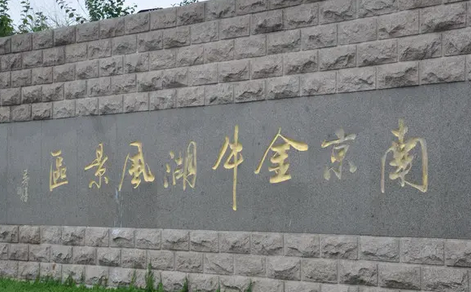 南京金牛湖风景區